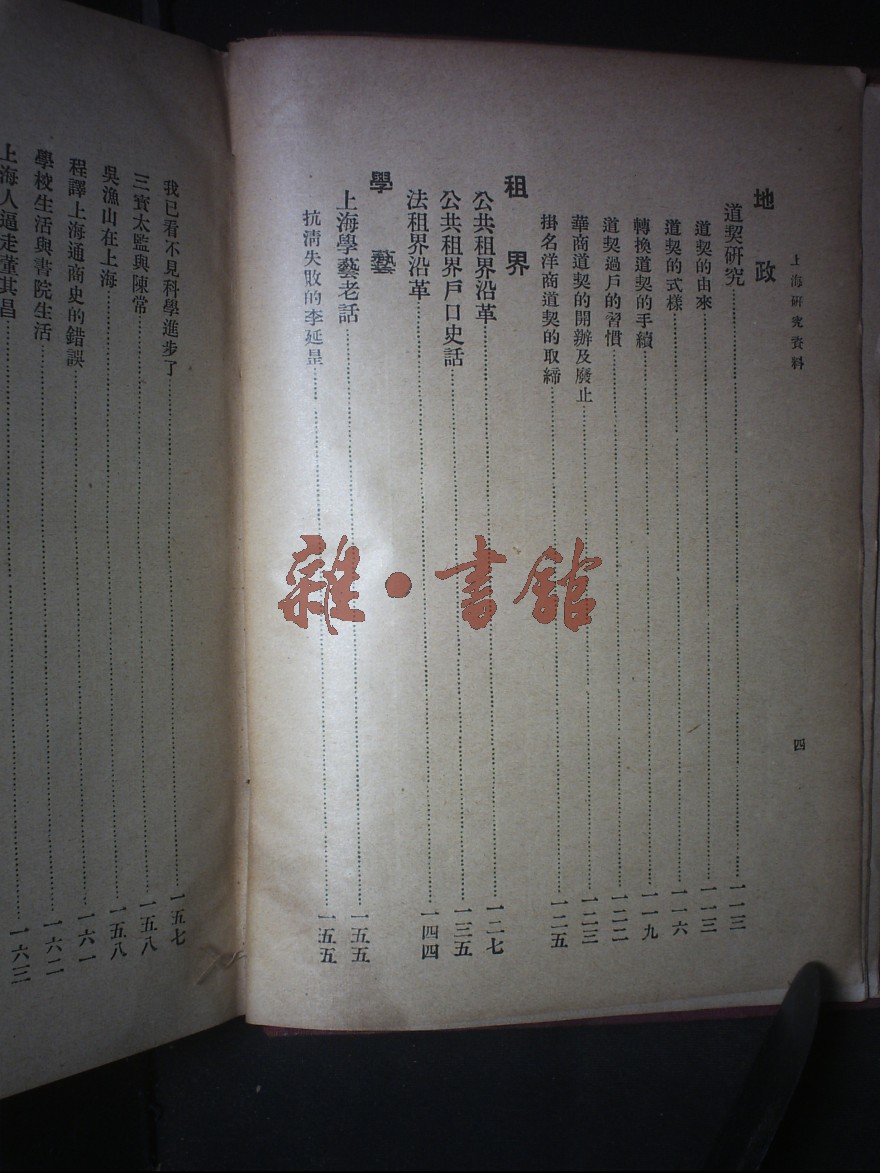 上海研究資料
四
地政
道契研究……一一三
道契的由來……一一三
道契的式樣……一一六
轉換道契的手續……一一九
道契過戶的習慣……一二二
華商道契的開辦及廢止……一二三
掛名洋商道契的取締……一二五
租界
公共租界沿革……一二七
公共租界戶口史話……一三五
法租界沿革……一四四
學藝
上海學藝老話……一五五
抗清失敗的李延昰……一五五
我已看不見科學進步了……一五七
三寳太監與陳常……一五八
吳漁山在上海……一五八
程譯上海通商史的錯誤……一六一
學校生活與書院生活……一六二
上海人逼走董其昌……一六三
雜·書館